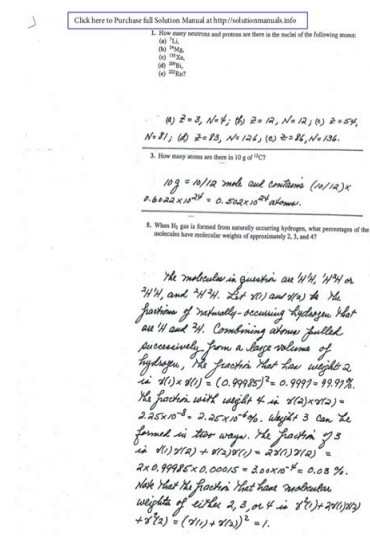 Click here to Purchase full Solution Manual at http://solutionmanuals.info
1. How many neutrons and protons are there in the nuclei of the following atoms:
(a) ⁷Li,
(b) ²⁴Mg,
(c) ¹³⁵Xe,
(d) ²⁰⁹Bi,
(e) ²²²Rn?
(a) Z=3, N=4; (b) Z=12, N=12; (c) Z=54,
N=81; (d) Z=83, N=126; (e) Z=86, N=136.
3. How many atoms are there in 10 g of ¹²C?
10g = 10/12 mole and contains (10/12)×
0.6022×10²⁴ = 0.502×10²⁴ atoms.
5. When H₂ gas is formed from naturally occurring hydrogen, what percentages of the
molecules have molecular weights of approximately 2, 3, and 4?
The molecules in question are ¹H¹H, ¹H²H or
²H¹H, and ²H²H. Let γ(1) and γ(2) be the
fractions of naturally-occurring hydrogen that
are ¹H and ²H. Combining atoms pulled
successively from a large volume of
hydrogen, the fraction that has weight 2
is γ(1)×γ(1) = (0.99985)² = 0.9997 = 99.97%.
The fraction with weight 4 is γ(2)×γ(2) =
2.25×10⁻⁸ = 2.25×10⁻⁶%. Weight 3 can be
formed in two ways. The fraction of 3
is γ(1)γ(2) + γ(2)γ(1) = 2γ(1)γ(2) =
2×0.99985×0.00015 = 3.00×10⁻⁴ = 0.03%.
Note that the fraction that have molecular
weights of either 2, 3, or 4 is γ²(1)+2γ(1)γ(2)
+γ²(2) = (γ(1)+γ(2))² = 1.